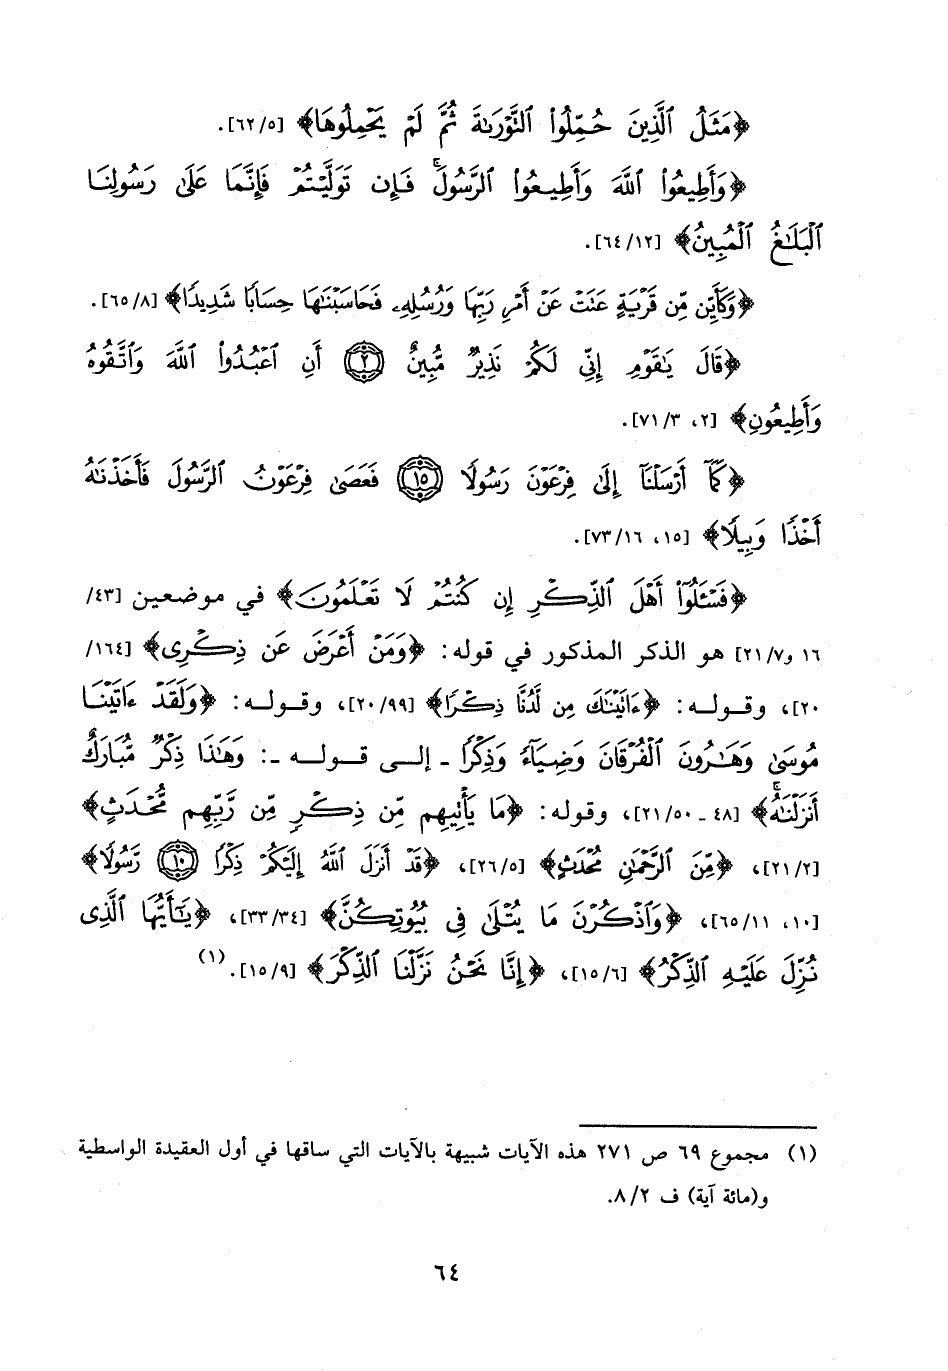 ﴿مَثَلُ ٱلَّذِينَ حُمِّلُوا۟ ٱلتَّوْرَىٰةَ ثُمَّ لَمْ يَحْمِلُوهَا﴾ [٦٢/٥].
﴿وَأَطِيعُوا۟ ٱللَّهَ وَأَطِيعُوا۟ ٱلرَّسُولَ ۚ فَإِن تَوَلَّيْتُمْ فَإِنَّمَا عَلَىٰ رَسُولِنَا
ٱلْبَلَـٰغُ ٱلْمُبِينُ﴾ [٦٤/١٢].
﴿وَكَأَيِّن مِّن قَرْيَةٍ عَتَتْ عَنْ أَمْرِ رَبِّهَا وَرُسُلِهِۦ فَحَاسَبْنَـٰهَا حِسَابًا شَدِيدًا﴾ [٦٥/٨].
﴿قَالَ يَـٰقَوْمِ إِنِّى لَكُمْ نَذِيرٌ مُّبِينٌ ۝٢ أَنِ ٱعْبُدُوا۟ ٱللَّهَ وَٱتَّقُوهُ
وَأَطِيعُونِ﴾ [٢، ٧١/٣].
﴿كَمَآ أَرْسَلْنَآ إِلَىٰ فِرْعَوْنَ رَسُولًا ۝١٥ فَعَصَىٰ فِرْعَوْنُ ٱلرَّسُولَ فَأَخَذْنَـٰهُ
أَخْذًا وَبِيلًا﴾ [١٥، ٧٣/١٦].
﴿فَسْـَٔلُوٓا۟ أَهْلَ ٱلذِّكْرِ إِن كُنتُمْ لَا تَعْلَمُونَ﴾ في موضعين [٤٣/
١٦ و٢١/٧] هو الذكر المذكور في قوله: ﴿وَمَنْ أَعْرَضَ عَن ذِكْرِى﴾ [١٦٤/
٢٠]، وقوله: ﴿ءَاتَيْنَـٰكَ مِن لَّدُنَّا ذِكْرًا﴾ [٢٠/٩٩]، وقوله: ﴿وَلَقَدْ ءَاتَيْنَا
مُوسَىٰ وَهَـٰرُونَ ٱلْفُرْقَانَ وَضِيَآءً وَذِكْرًا ـ إلى قوله ـ: وَهَـٰذَا ذِكْرٌ مُّبَارَكٌ
أَنزَلْنَـٰهُ ۚ﴾ [٤٨ ـ ٢١/٥٠]، وقوله: ﴿مَا يَأْتِيهِم مِّن ذِكْرٍ مِّن رَّبِّهِم مُّحْدَثٍ﴾
[٢١/٢]، ﴿مِّنَ ٱلرَّحْمَـٰنِ مُحْدَثٍ﴾ [٢٦/٥]، ﴿قَدْ أَنزَلَ ٱللَّهُ إِلَيْكُمْ ذِكْرًا ۝١٠ رَّسُولًا﴾
[١٠، ٦٥/١١]، ﴿وَٱذْكُرْنَ مَا يُتْلَىٰ فِى بُيُوتِكُنَّ﴾ [٣٣/٣٤]، ﴿يَـٰٓأَيُّهَا ٱلَّذِى
نُزِّلَ عَلَيْهِ ٱلذِّكْرُ﴾ [١٥/٦]، ﴿إِنَّا نَحْنُ نَزَّلْنَا ٱلذِّكْرَ﴾ [١٥/٩].(١)
(١) مجموع ٦٩ ص ٢٧١ هذه الآيات شبيهة بالآيات التي ساقها في أول العقيدة الواسطية
و(مائة آية) ف ٨/٢.
٦٤